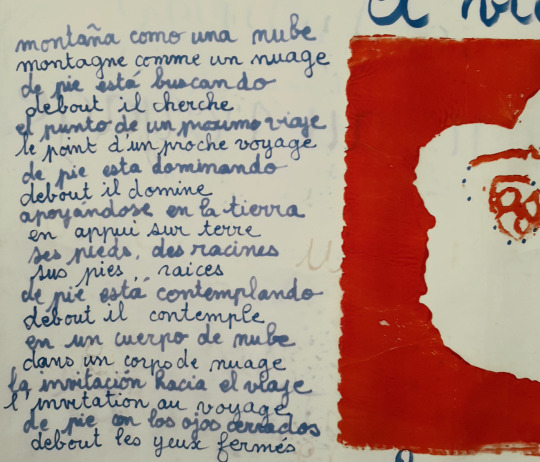 montaña como una nube
montagne comme un nuage
de pie está buscando
debout il cherche
el punto de un proximo viaje
le point d'un proche voyage
de pie esta dominando
debout il domine
apoyandose en la tierra
en appui sur terre
ses pieds, des racines
sus pies, raices
de pie está contemplando
debout il contemple
en un cuerpo de nube
dans un corps de nuage
la invitación hacia el viaje
l'invitation au voyage
de pie con los ojos cerrados
debout les yeux fermés